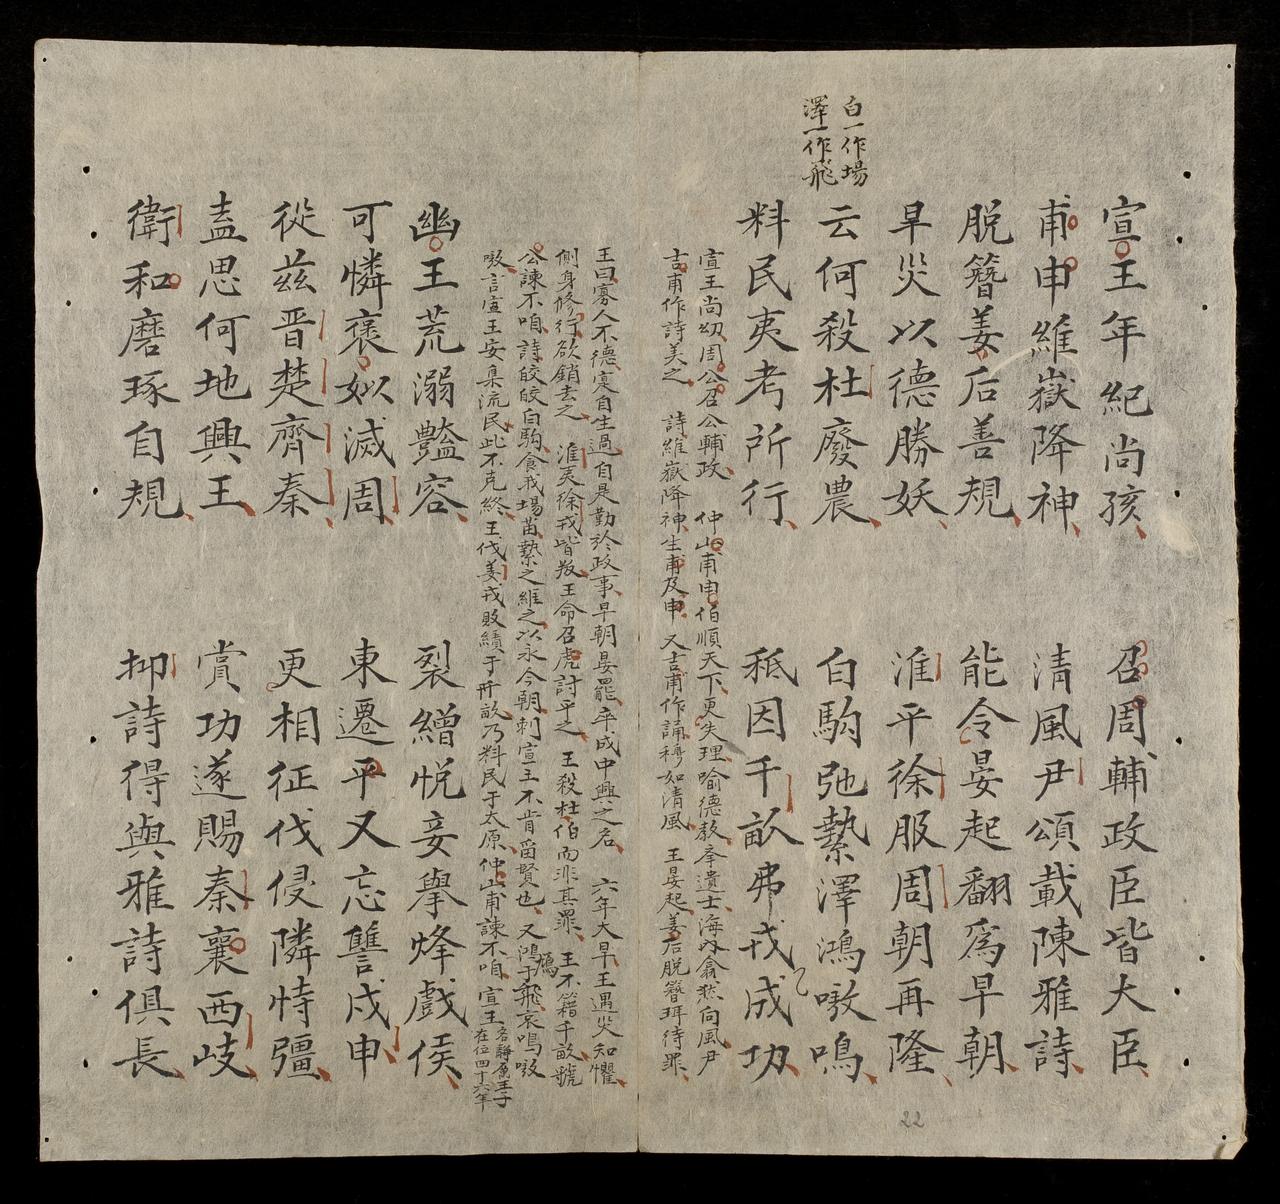 白一作場
澤一作飛
宣王年紀尚孩
召周輔政臣皆大臣
甫申維嶽降神
清風尹頌載陳雅詩
脫簪姜后善規
能令晏起翻爲早朝
旱災以德勝妖
淮平徐服周朝再隆
云何殺杜廢農
白駒弛縶澤鴻嗷鳴
料民夷考所行
秪因千畝弗戎成功
宣王尚幼周公召公輔政 仲山甫申伯順天下更失理喻德教季遺士海內翕然向風尹
吉甫作詩美之 詩維嶽降神生甫及申 又吉甫作誦穆如清風 王晏起姜后脫簪珥待罪
王曰寡人不德寔自生過自是勤於政事早朝晏罷卒成中興之名 六年大旱王遇災知懼
側身修行欲銷去之 淮夷徐戎皆叛王命召虎討平之 王殺杜伯而非其罪 王不籍千畝虢
公諫不咱 詩皎皎白駒食我場苗縶之維之以永今朝刺宣王不肯畱賢也 又鴻鴈于飛哀鳴嗷
嗷言宣王安集流民此不克終 王伐姜戎敗績于千畝乃料民于太原仲山甫諫不咱 宣王名靜厲王子
在位四十六年
幽王荒溺豔容
裂繒悅妾舉烽戲侯
可憐褒姒滅周
東遷平又忘讐戍申
從茲晋楚齊秦
更相征伐侵隣恃彊
盍思何地興王
賞功遂賜秦襄西岐
衛和磨琢自規
抑詩得與雅詩俱長
22